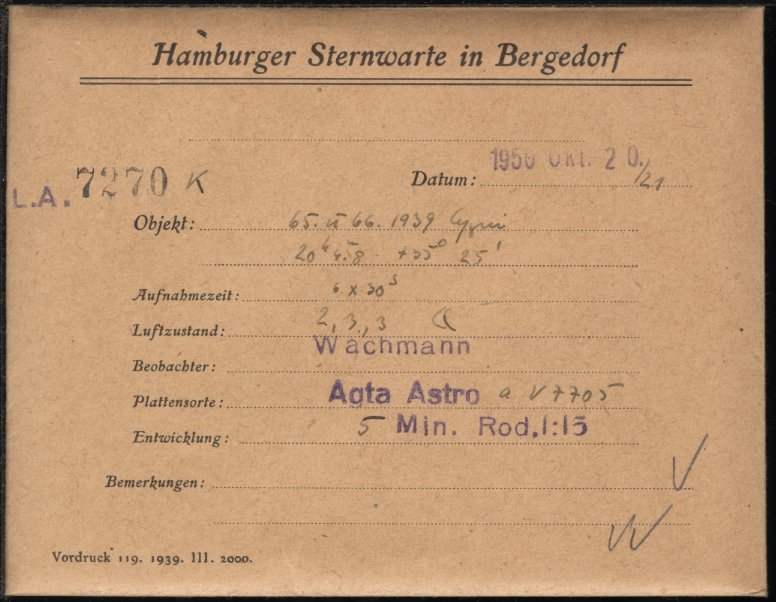 Hamburger Sternwarte in Bergedorf
L.A. 7270 K
Datum: 1950 OKT. 20./21
Objekt: 65. u 66. 1939 Cygni
20h 4m.8 +35° 25'
Aufnahmezeit: 6 x 30s
Luftzustand: 2, 3, 3
Beobachter: Wachmann
Plattensorte: Agfa Astro a V7705
Entwicklung: 5 Min. Rod.1:15
Bemerkungen:
Vordruck 119. 1939. III. 2000.